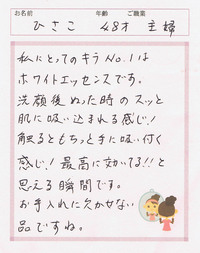 お名前 年齢 ご職業
ひさこ 48才 主婦
私にとってのキラNo.1は
ホワイトエッセンスです。
洗顔後ぬった時のスッと
肌に吸い込まれる感じ!
触るともちっと手に吸い付く
感じ!最高に効いてる!!と
思える瞬間です。
お手入れに欠かせない
品ですね。